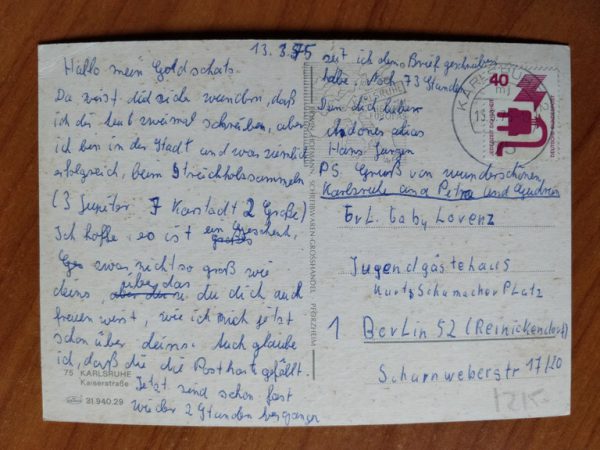 13.3.75
Hallo mein Goldschatz
Da wirst did sicher wundern, daß
ich dir heut zweimal schreibe, aber
ich bin in der Stadt und war ziemlich
erfolgreich, beim Streichholzsammeln
(3 Jupiter 7 Karstadt 2 Große)
Ich hoffe, es ist ein Geschenk,
zwar nicht so groß wie
deins, über das du dich auch
freuen wirst, wie ich mich jetzt
schon über deins. Auch glaube
ich, daß die die Postkarte gefällt.
Jetzt sind schon fast
wieder 2 Stunden vergangen
seit ich den Brief geschrieben
habe. Noch 73 Stunden
Dein dich liebender
alias
Hans Jürgen
PS Gruß von wunderschönen
Karlsruhe and Petra and Gudrun
75 KARLSRUHE
Kaiserstraße
31.940.29
SCHREIBWAREN-GROSSHANDEL PFORZHEIM
KARLSRUHE
13.
40
Frl. Gaby Lorenz
Jugendgästehaus
Kurt-Schumacher Platz
1 Berlin 52 (Reinickendorf)
Scharnweberstr 17/20